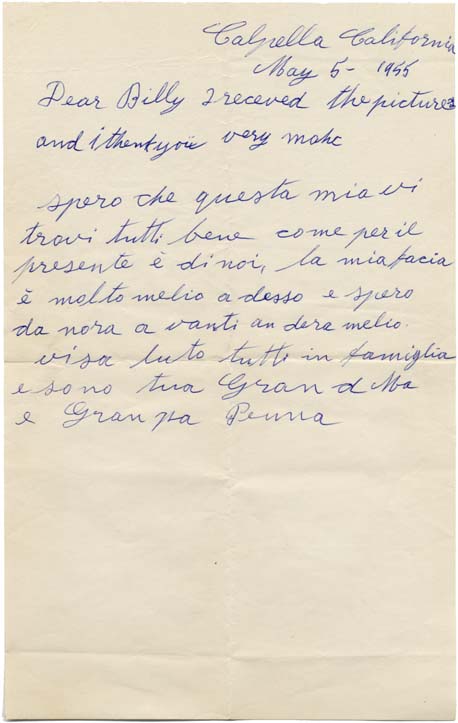 Calpella California
May 5 - 1955
Dear Billy I receved the pictures
and i thenkyou very mohc
spero che questa mia vi
trovi tutti bene come per il
presente è di noi, la mia facia
è molto melio a desso e spero
da nora a vanti an dera melio.
vi sa luto tutti in famiglia
e sono tua Gran d Ma
e Gran pa Penna